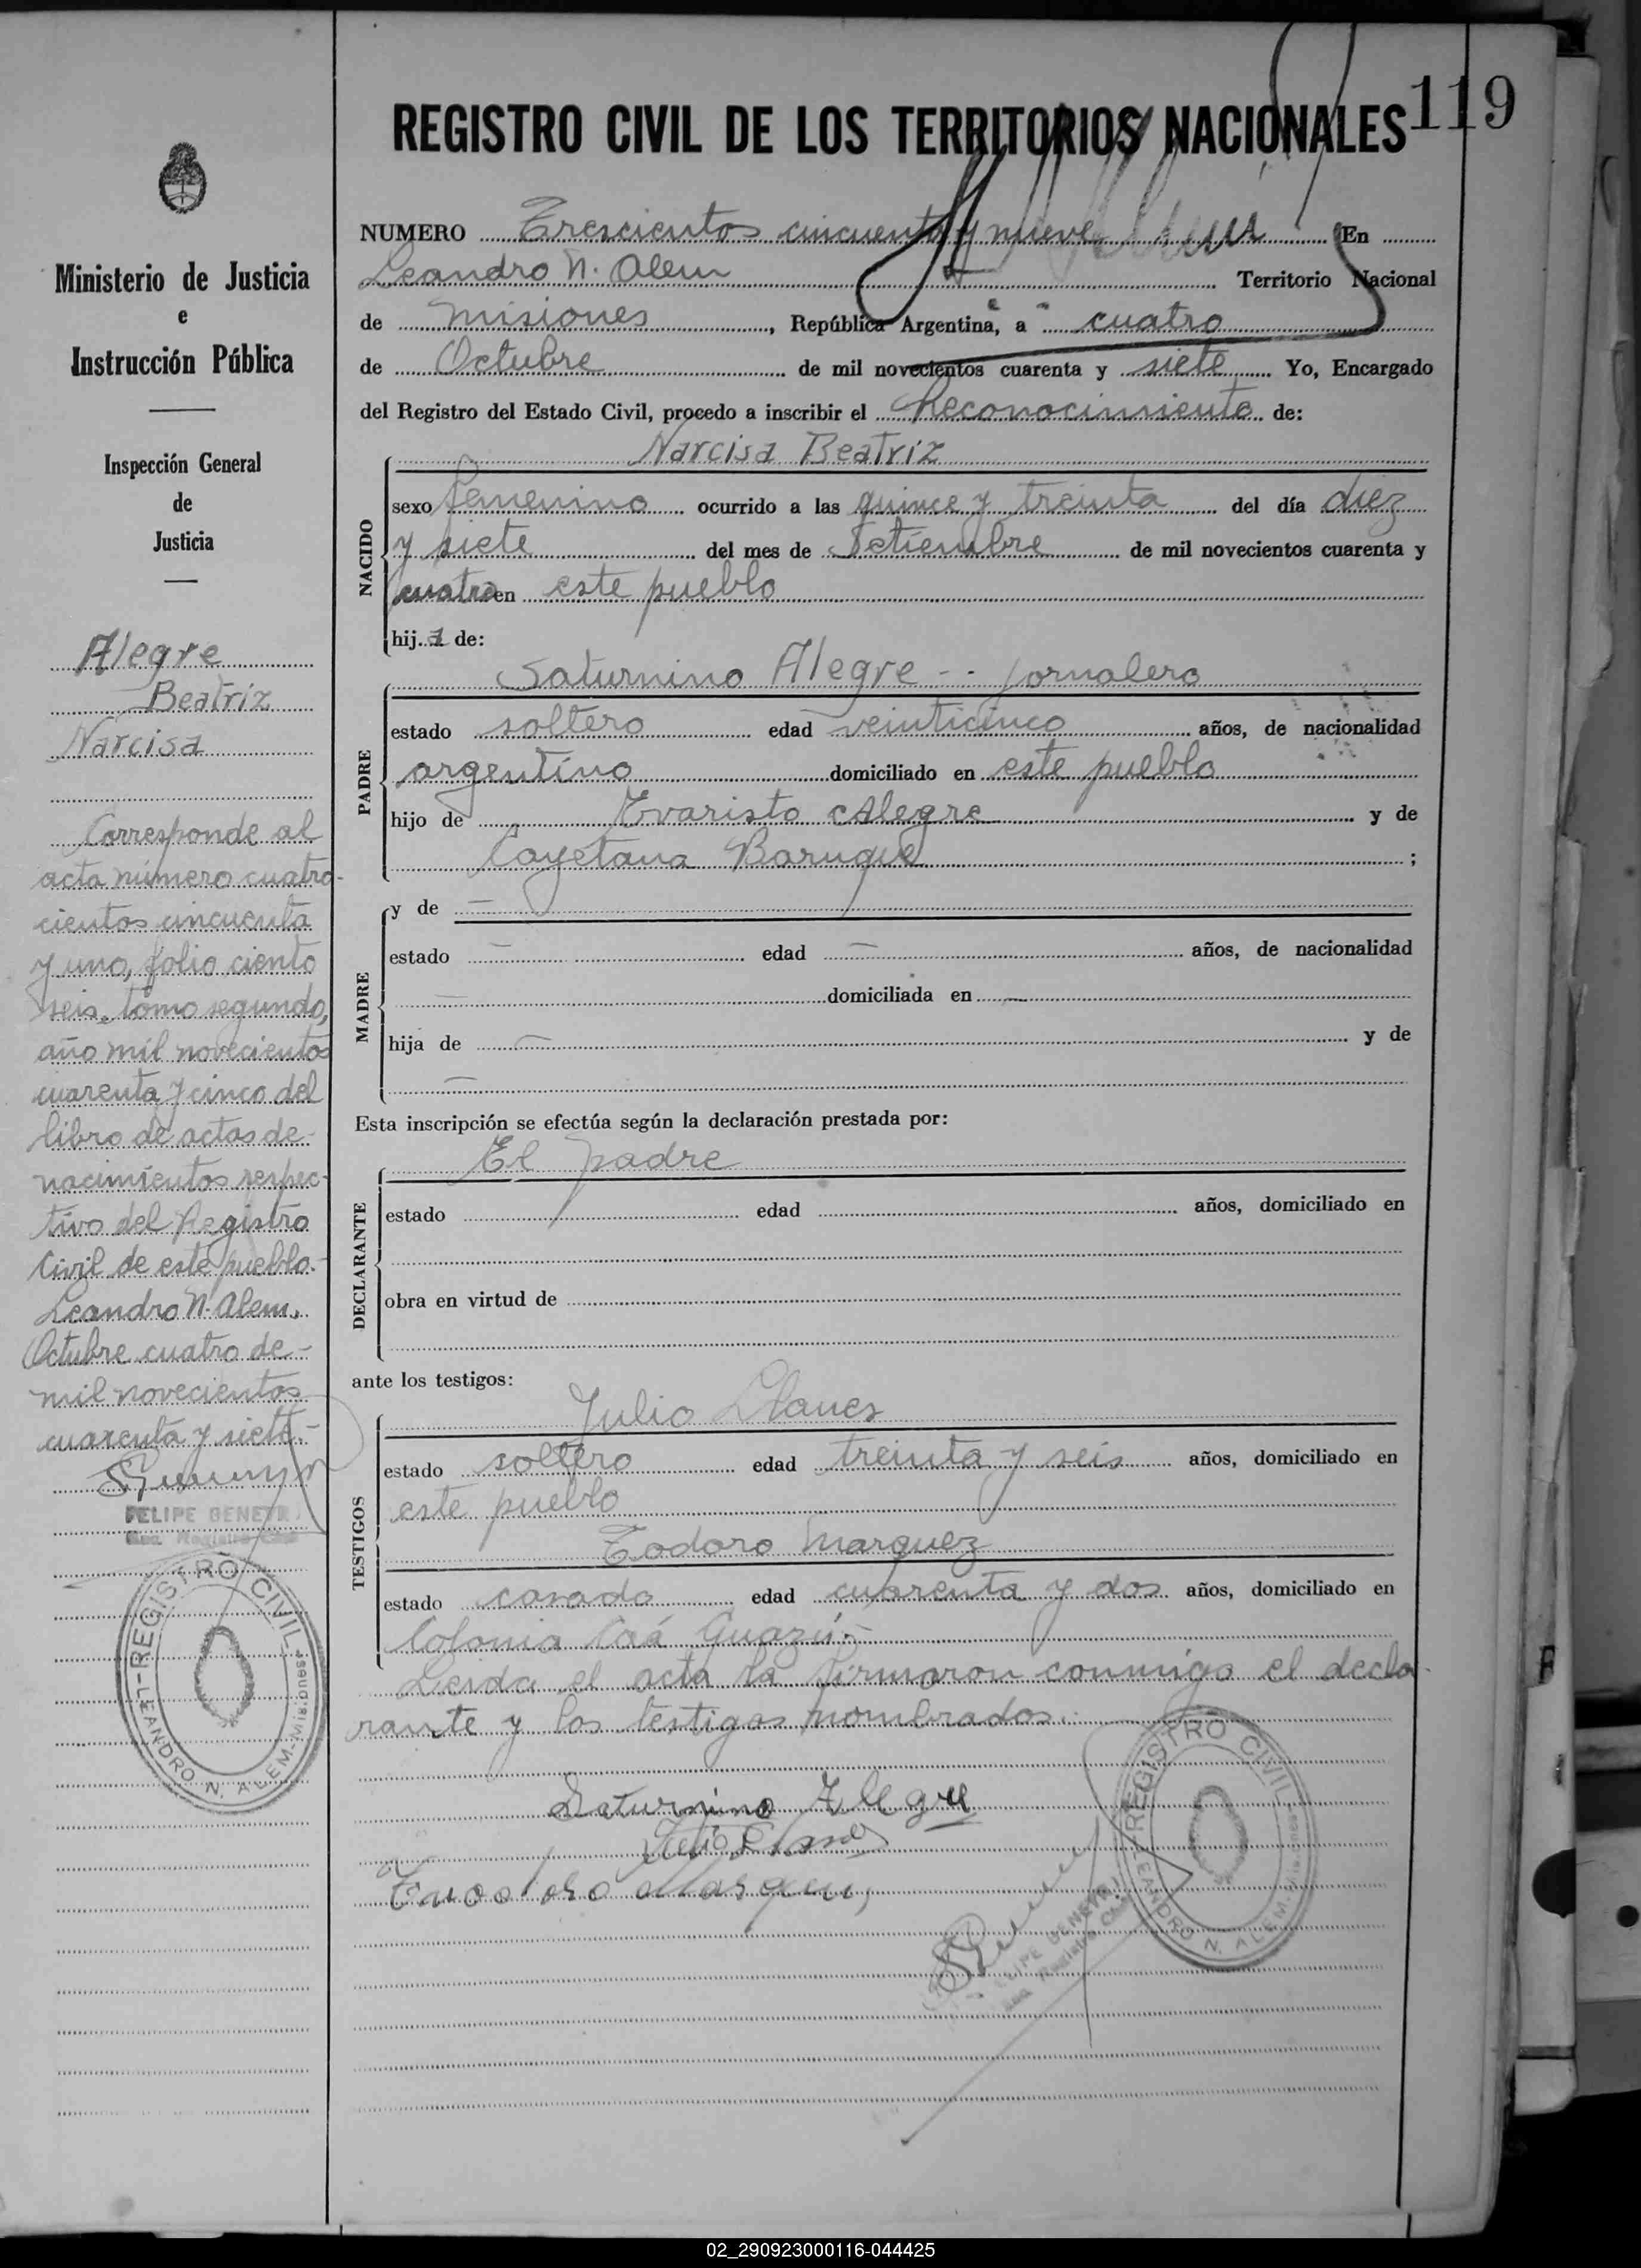 119
REGISTRO CIVIL DE LOS TERRITORIOS NACIONALES
Ministerio de Justicia
e
Instrucción Pública
Inspección General
de
Justicia
Alegre
Beatriz
Narcisa
Corresponde al
acta número cuatro-
cientos cincuenta
y uno, folio ciento
seis, tomo segundo,
año mil novecientos
cuarenta y cinco del
libro de actas de
nacimientos respec-
tivo del Registro
Civil de este pueblo.-
Leandro N. Alem,
Octubre cuatro de-
mil novecientos
cuarenta y siete.-
FELIPE
REGISTRO CIVIL
LEANDRO N. ALEM - Misiones
NUMERO Trescientos cincuenta y nueve En
Leandro N. Alem Territorio Nacional
de Misiones, República Argentina, a cuatro
de Octubre de mil novecientos cuarenta y siete Yo, Encargado
del Registro del Estado Civil, procedo a inscribir el Reconocimiento de:
NACIDO
Narcisa Beatriz
sexo femenino ocurrido a las quince y treinta del día diez
y siete del mes de Setiembre de mil novecientos cuarenta y
cuatro en este pueblo
hij a de:
PADRE
Saturnino Alegre -- jornalero
estado soltero edad veinticinco años, de nacionalidad
argentino domiciliado en este pueblo
hijo de Evaristo Alegre y de
Cayetana Baruque ;
MADRE
y de —
estado — edad — años, de nacionalidad
— domiciliada en —
hija de — y de
—
Esta inscripción se efectúa según la declaración prestada por:
DECLARANTE
El padre
estado edad años, domiciliado en
obra en virtud de
ante los testigos:
TESTIGOS
Julio Llanes
estado soltero edad treinta y seis años, domiciliado en
este pueblo
Todoro Marquez
estado casado edad cuarenta y dos años, domiciliado en
Colonia Caá Guazú.-
Leida el acta la firmaron conmigo el decla-
rante y los testigos nombrados.
Saturnino Alegre
Julio Llanes
REGISTRO CIVIL
LEANDRO N. ALEM - Misiones
02_290923000116-044425